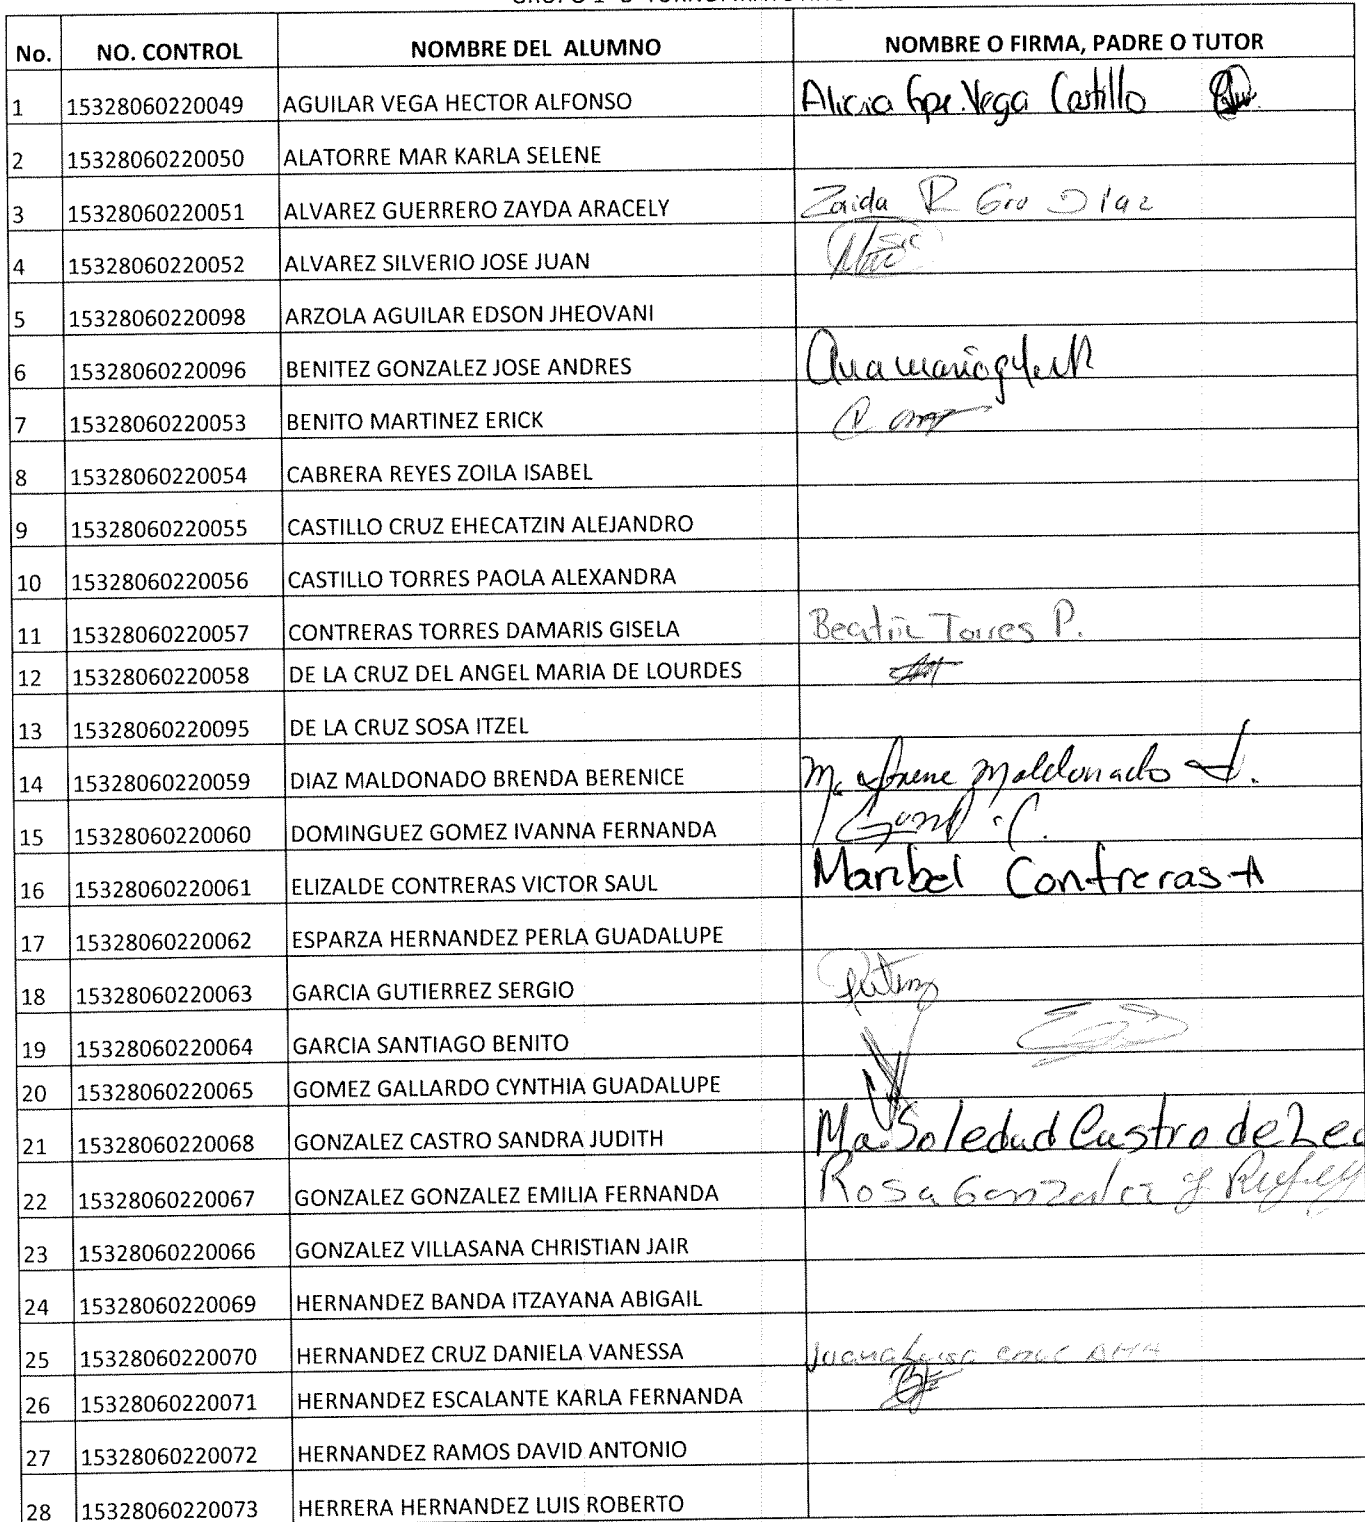 No. NO. CONTROL NOMBRE DEL ALUMNO NOMBRE O FIRMA, PADRE O TUTOR
1 15328060220049 AGUILAR VEGA HECTOR ALFONSO Alicia Gpe. Vega Castillo
2 15328060220050 ALATORRE MAR KARLA SELENE
3 15328060220051 ALVAREZ GUERRERO ZAYDA ARACELY Zaida R Gro Diaz
4 15328060220052 ALVAREZ SILVERIO JOSE JUAN
5 15328060220098 ARZOLA AGUILAR EDSON JHEOVANI
6 15328060220096 BENITEZ GONZALEZ JOSE ANDRES Ana maria
7 15328060220053 BENITO MARTINEZ ERICK
8 15328060220054 CABRERA REYES ZOILA ISABEL
9 15328060220055 CASTILLO CRUZ EHECATZIN ALEJANDRO
10 15328060220056 CASTILLO TORRES PAOLA ALEXANDRA
11 15328060220057 CONTRERAS TORRES DAMARIS GISELA Beatriz Torres P.
12 15328060220058 DE LA CRUZ DEL ANGEL MARIA DE LOURDES
13 15328060220095 DE LA CRUZ SOSA ITZEL
14 15328060220059 DIAZ MALDONADO BRENDA BERENICE Ma. Irene Maldonado
15 15328060220060 DOMINGUEZ GOMEZ IVANNA FERNANDA
16 15328060220061 ELIZALDE CONTRERAS VICTOR SAUL Maribel Contreras A
17 15328060220062 ESPARZA HERNANDEZ PERLA GUADALUPE
18 15328060220063 GARCIA GUTIERREZ SERGIO
19 15328060220064 GARCIA SANTIAGO BENITO
20 15328060220065 GOMEZ GALLARDO CYNTHIA GUADALUPE
21 15328060220068 GONZALEZ CASTRO SANDRA JUDITH Ma. Soledad Castro de Leo
22 15328060220067 GONZALEZ GONZALEZ EMILIA FERNANDA Rosa Gonzalez y
23 15328060220066 GONZALEZ VILLASANA CHRISTIAN JAIR
24 15328060220069 HERNANDEZ BANDA ITZAYANA ABIGAIL
25 15328060220070 HERNANDEZ CRUZ DANIELA VANESSA Juana Luisa cruz
26 15328060220071 HERNANDEZ ESCALANTE KARLA FERNANDA
27 15328060220072 HERNANDEZ RAMOS DAVID ANTONIO
28 15328060220073 HERRERA HERNANDEZ LUIS ROBERTO